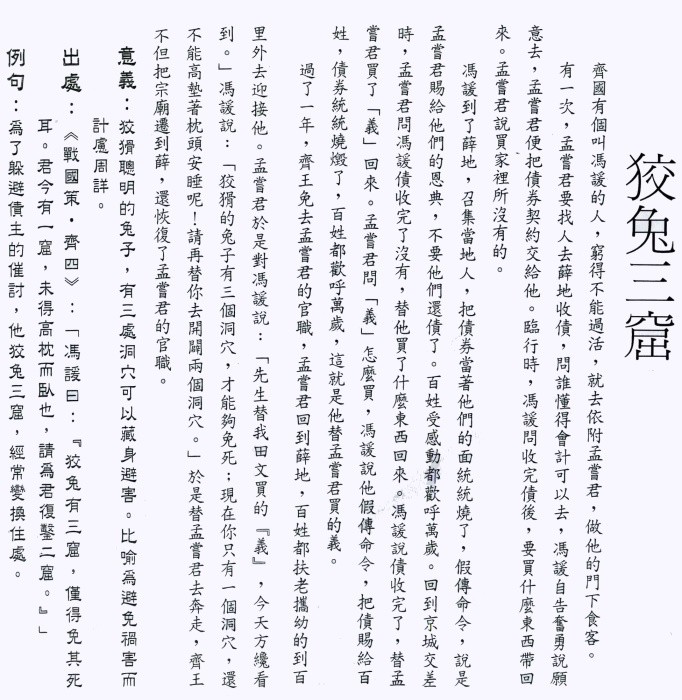 狡兔三窟
齊國有個叫馮諼的人，窮得不能過活，就去依附孟嘗君，做他的門下食客。
有一次，孟嘗君要找人去薛地收債，問誰懂得會計可以去，馮諼自告奮勇說願
意去，孟嘗君便把債券契約交給他。臨行時，馮諼問收完債後，要買什麼東西帶回
來。孟嘗君說買家裡所沒有的。
馮諼到了薛地，召集當地人，把債券當著他們的面統統燒了，假傳命令，說是
孟嘗君賜給他們的恩典，不要他們還債了。百姓受感動都歡呼萬歲。回到京城交差
時，孟嘗君問馮諼債收完了沒有，替他買了什麼東西回來。馮諼說債收完了，替孟
嘗君買了「義」回來。孟嘗君問「義」怎麼買，馮諼說他假傳命令，把債賜給百
姓，債券統統燒燬了，百姓都歡呼萬歲，這就是他替孟嘗君買的義。
過了一年，齊王免去孟嘗君的官職，孟嘗君回到薛地，百姓都扶老攜幼的到百
里外去迎接他。孟嘗君於是對馮諼說：「先生替我田文買的『義』，今天方纔看
到。」馮諼說：「狡猾的兔子有三個洞穴，才能夠免死；現在你只有一個洞穴，還
不能高墊著枕頭安睡呢！請再替你去開闢兩個洞穴。」於是替孟嘗君去奔走，齊王
不但把宗廟遷到薛，還恢復了孟嘗君的官職。
意義：狡猾聰明的兔子，有三處洞穴可以藏身避害。比喻為避免禍害而
計慮周詳。
出處：《戰國策・齊四》：「馮諼曰：『狡兔有三窟，僅得免其死
耳。君今有一窟，未得高枕而臥也，請為君復鑿二窟。』」
例句：為了躲避債主的催討，他狡兔三窟，經常變換住處。